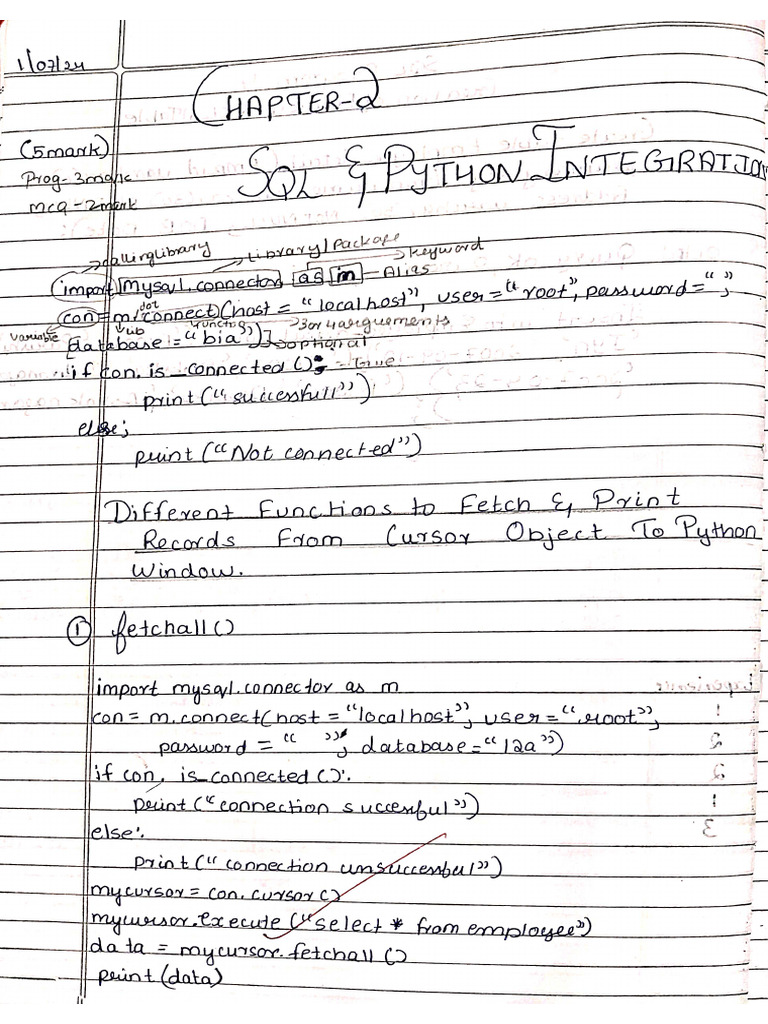 1/07/24
CHAPTER-2
(5mark)
Prog- 3mark
mcq -2mark
SQL & PYTHON INTEGRATION
callinglibrary
Library/Package
keyword
import mysql.connector as m - Alias
dot
con = m.connect(host = "localhost", user = "root", password = " ",
variable
function
3or4arguements
[database = "bia")] optional
if con. is connected (): - True
print ("successfull")
else;
print ("Not connected")
Different Functions to Fetch & Print
Records From Cursor Object To Python
Window.
① fetchall()
import mysql.connector as m
con = m.connect(host = "localhost", user = "root",
password = " ", database = "12a")
if con. is_connected ():
print ("connection succesful")
else:
print ("connection unsuccessful")
mycursor = con.cursor()
mycursor.execute ("select * from employee")
data = mycursor.fetchall ()
print (data)